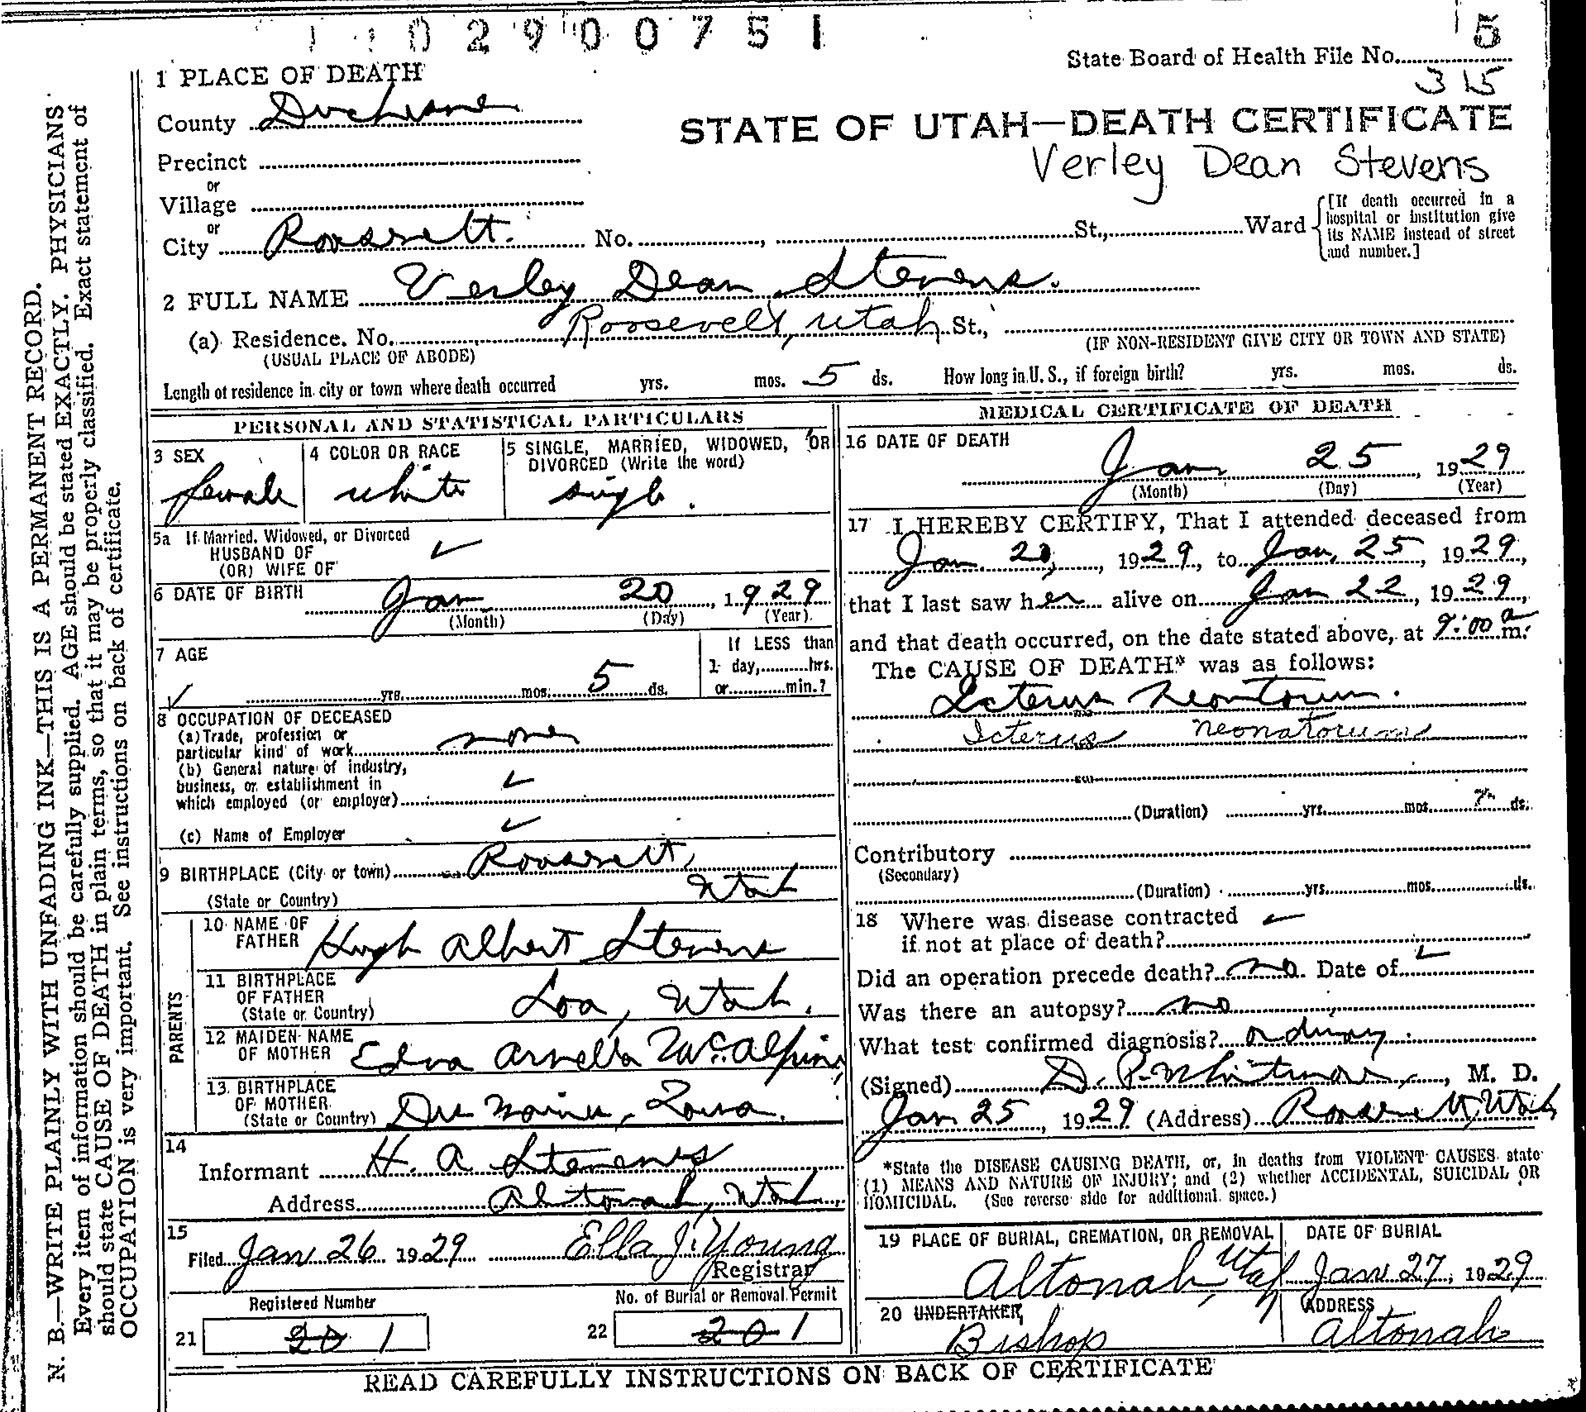 0 2 9 0 0 7 5 1
5
State Board of Health File No.
315
1 PLACE OF DEATH
County Duchesne
STATE OF UTAH—DEATH CERTIFICATE
Verley Dean Stevens
Precinct
or
Village
or
City Roosevelt. No. , St., Ward
[If death occurred in a
hospital or institution give
its NAME instead of street
and number.]
2 FULL NAME Verley Dean Stevens.
(a) Residence. No. Roosevelt, Utah St.,
(USUAL PLACE OF ABODE) (IF NON-RESIDENT GIVE CITY OR TOWN AND STATE)
Length of residence in city or town where death occurred yrs. mos. 5 ds. How long in U. S., if foreign birth? yrs. mos. ds.
PERSONAL AND STATISTICAL PARTICULARS
3 SEX
female
4 COLOR OR RACE
white
5 SINGLE, MARRIED, WIDOWED, OR
DIVORCED (Write the word)
single.
5a If Married, Widowed, or Divorced
HUSBAND OF
(OR) WIFE OF
6 DATE OF BIRTH Jan 20, 1929
(Month) (Day) (Year)
7 AGE
yrs. mos. 5 ds.
If LESS than
1 day, hrs.
or min.?
8 OCCUPATION OF DECEASED
(a) Trade, profession or
particular kind of work none
(b) General nature of industry,
business, or establishment in
which employed (or employer)
(c) Name of Employer
9 BIRTHPLACE (City or town) Roosevelt,
(State or Country) Utah
PARENTS
10 NAME OF
FATHER Hugh Albert Stevens
11 BIRTHPLACE
OF FATHER
(State or Country) Loa, Utah.
12 MAIDEN NAME
OF MOTHER Edna Arnella McAlpine
13 BIRTHPLACE
OF MOTHER
(State or Country) Des Moines, Iowa.
14
Informant H. A Stevens
Address Altonah, Utah,
15
Filed Jan 26 1929 Ella J. Young
Registrar
Registered Number
21 20 1
No. of Burial or Removal Permit
22 201
MEDICAL CERTIFICATE OF DEATH
16 DATE OF DEATH
Jan 25, 1929
(Month) (Day) (Year)
17 I HEREBY CERTIFY, That I attended deceased from
Jan. 20, 1929, to Jan. 25, 1929,
that I last saw her alive on Jan 22, 1929,
and that death occurred, on the date stated above, at 9:00 a m.
The CAUSE OF DEATH* was as follows:
Icterus Neontorum.
Icterus Neonatorum
(Duration) yrs. mos. ds.
Contributory
(Secondary)
(Duration) yrs. mos. ds.
18 Where was disease contracted
if not at place of death?
Did an operation precede death? no. Date of
Was there an autopsy? no
What test confirmed diagnosis? ordinary.
(Signed) D. P. Whitmore, M. D.
Jan 25, 1929 (Address) Roosevelt, Utah
*State the DISEASE CAUSING DEATH, or, in deaths from VIOLENT CAUSES state
(1) MEANS AND NATURE OF INJURY; and (2) whether ACCIDENTAL, SUICIDAL OR
HOMICIDAL. (See reverse side for additional space.)
19 PLACE OF BURIAL, CREMATION, OR REMOVAL
Altonah, Utah
DATE OF BURIAL
Jan 27, 1929
20 UNDERTAKER,
Bishop
ADDRESS
Altonah
READ CAREFULLY INSTRUCTIONS ON BACK OF CERTIFICATE
N. B.—WRITE PLAINLY WITH UNFADING INK—THIS IS A PERMANENT RECORD.
Every item of information should be carefully supplied. AGE should be stated EXACTLY. PHYSICIANS
should state CAUSE OF DEATH in plain terms, so that it may be properly classified. Exact statement of
OCCUPATION is very important. See instructions on back of certificate.